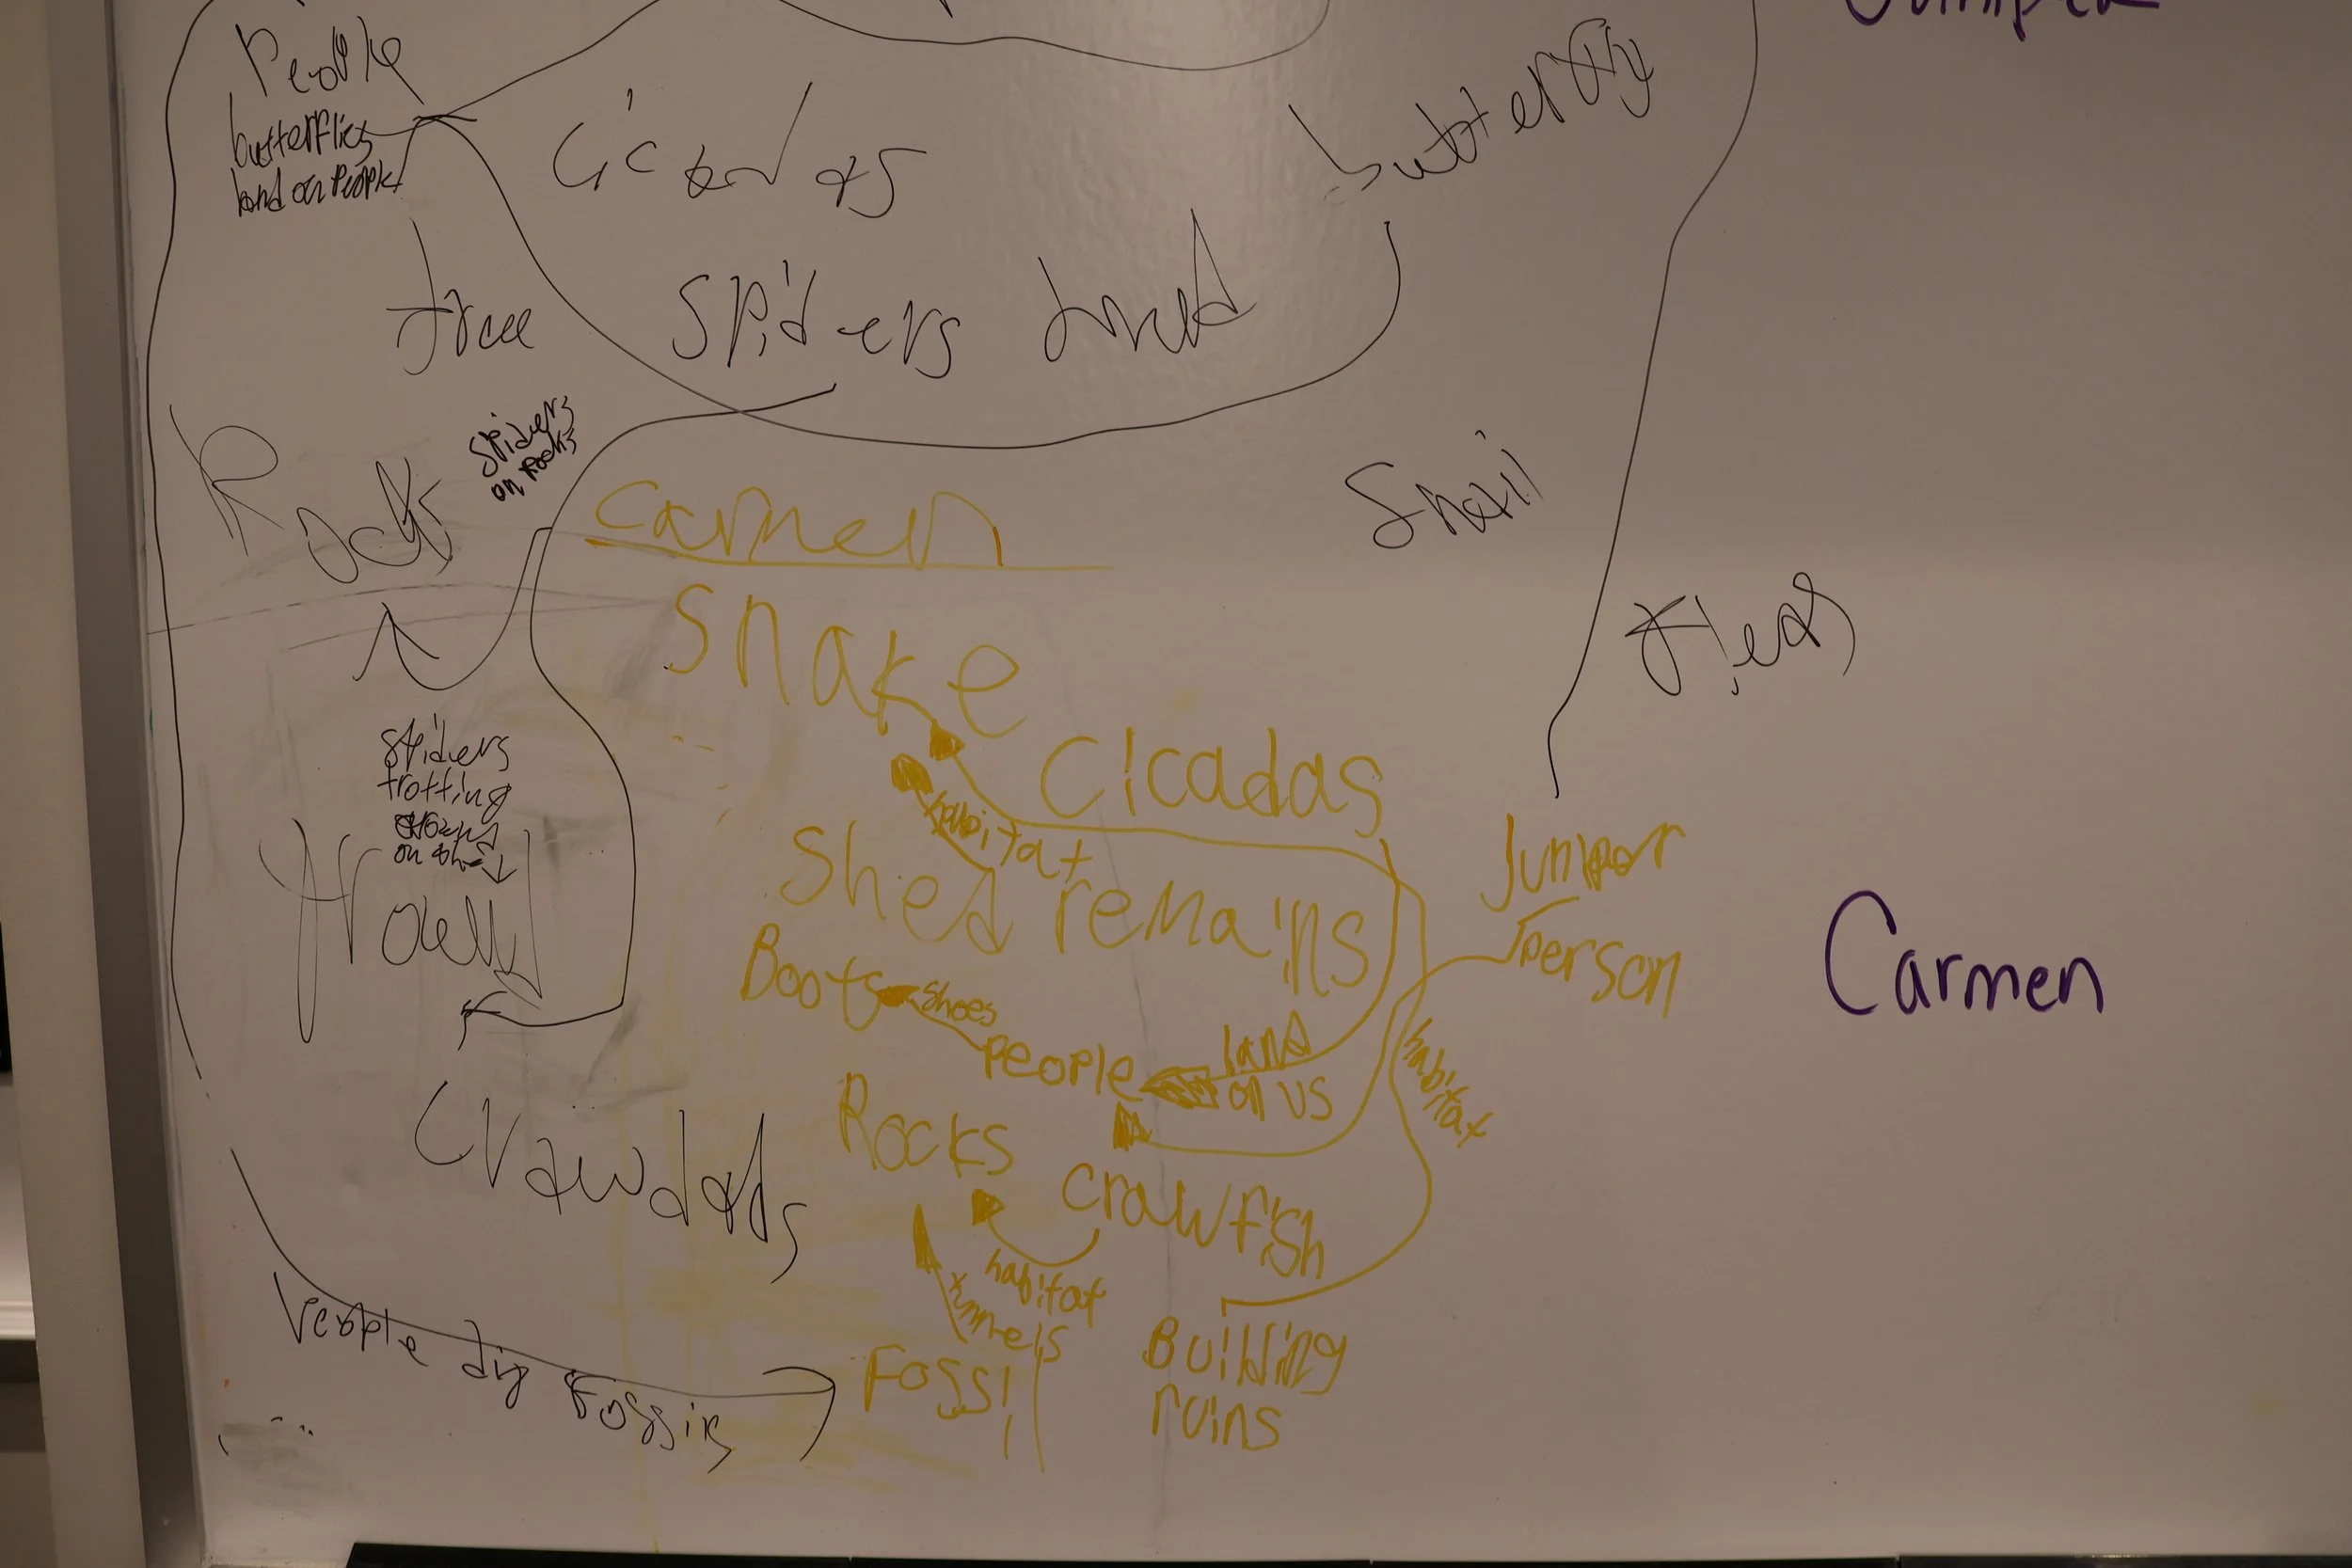 People
butterflies
land on People
Cicadas
butterfly
tree
Spiders
Rocks
Spiders
on rocks
Snail
carmen
snake
cicadas
habitat
Shed remains
Spiders
trotting
around
on the
Boots
shoes
People
land
on us
Juniper
Person
Carmen
habitat
Rocks
crawfish
habitat
Crawdads
People dig Fossils
Fossil
Building
ruins